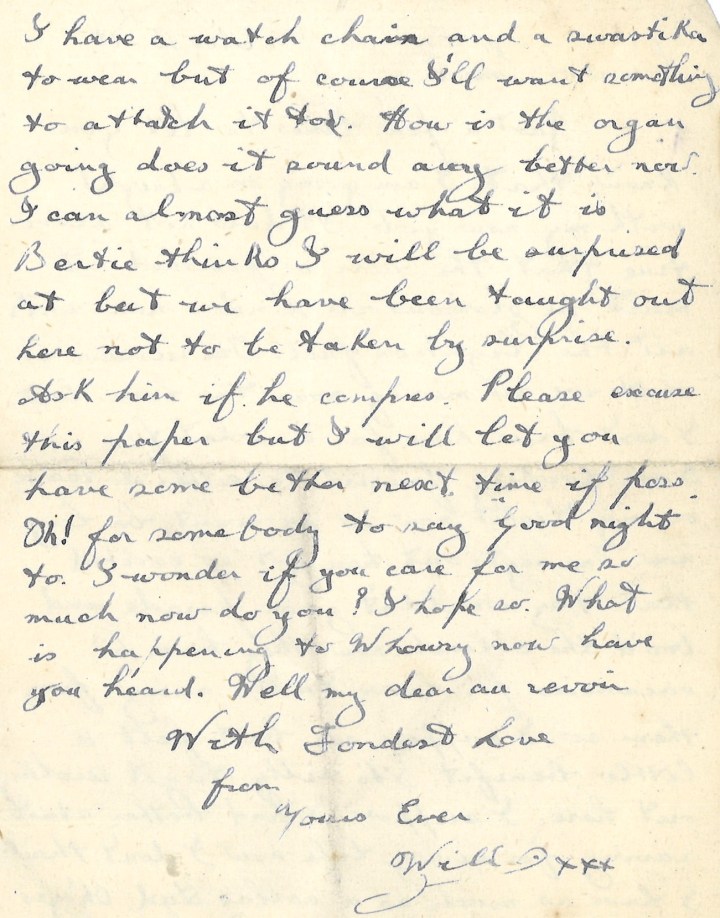 I have a watch chain and a swastika
to wear but of course I'll want something
to attatch it too. How is the organ
going does it sound any better now.
I can almost guess what it is
Bertie thinks I will be surprised
at but we have been taught out
here not to be taken by surprise.
Ask him if he compres. Please excuse
this paper but I will let you
have some better next time if poss.
Oh! for somebody to say "Good night
to. I wonder if you care for me so
much now do you? I hope so. What
is happening to now have
you heard. Well my dear au revoir
With Fondest Love
from
Yours Ever
Will xxx